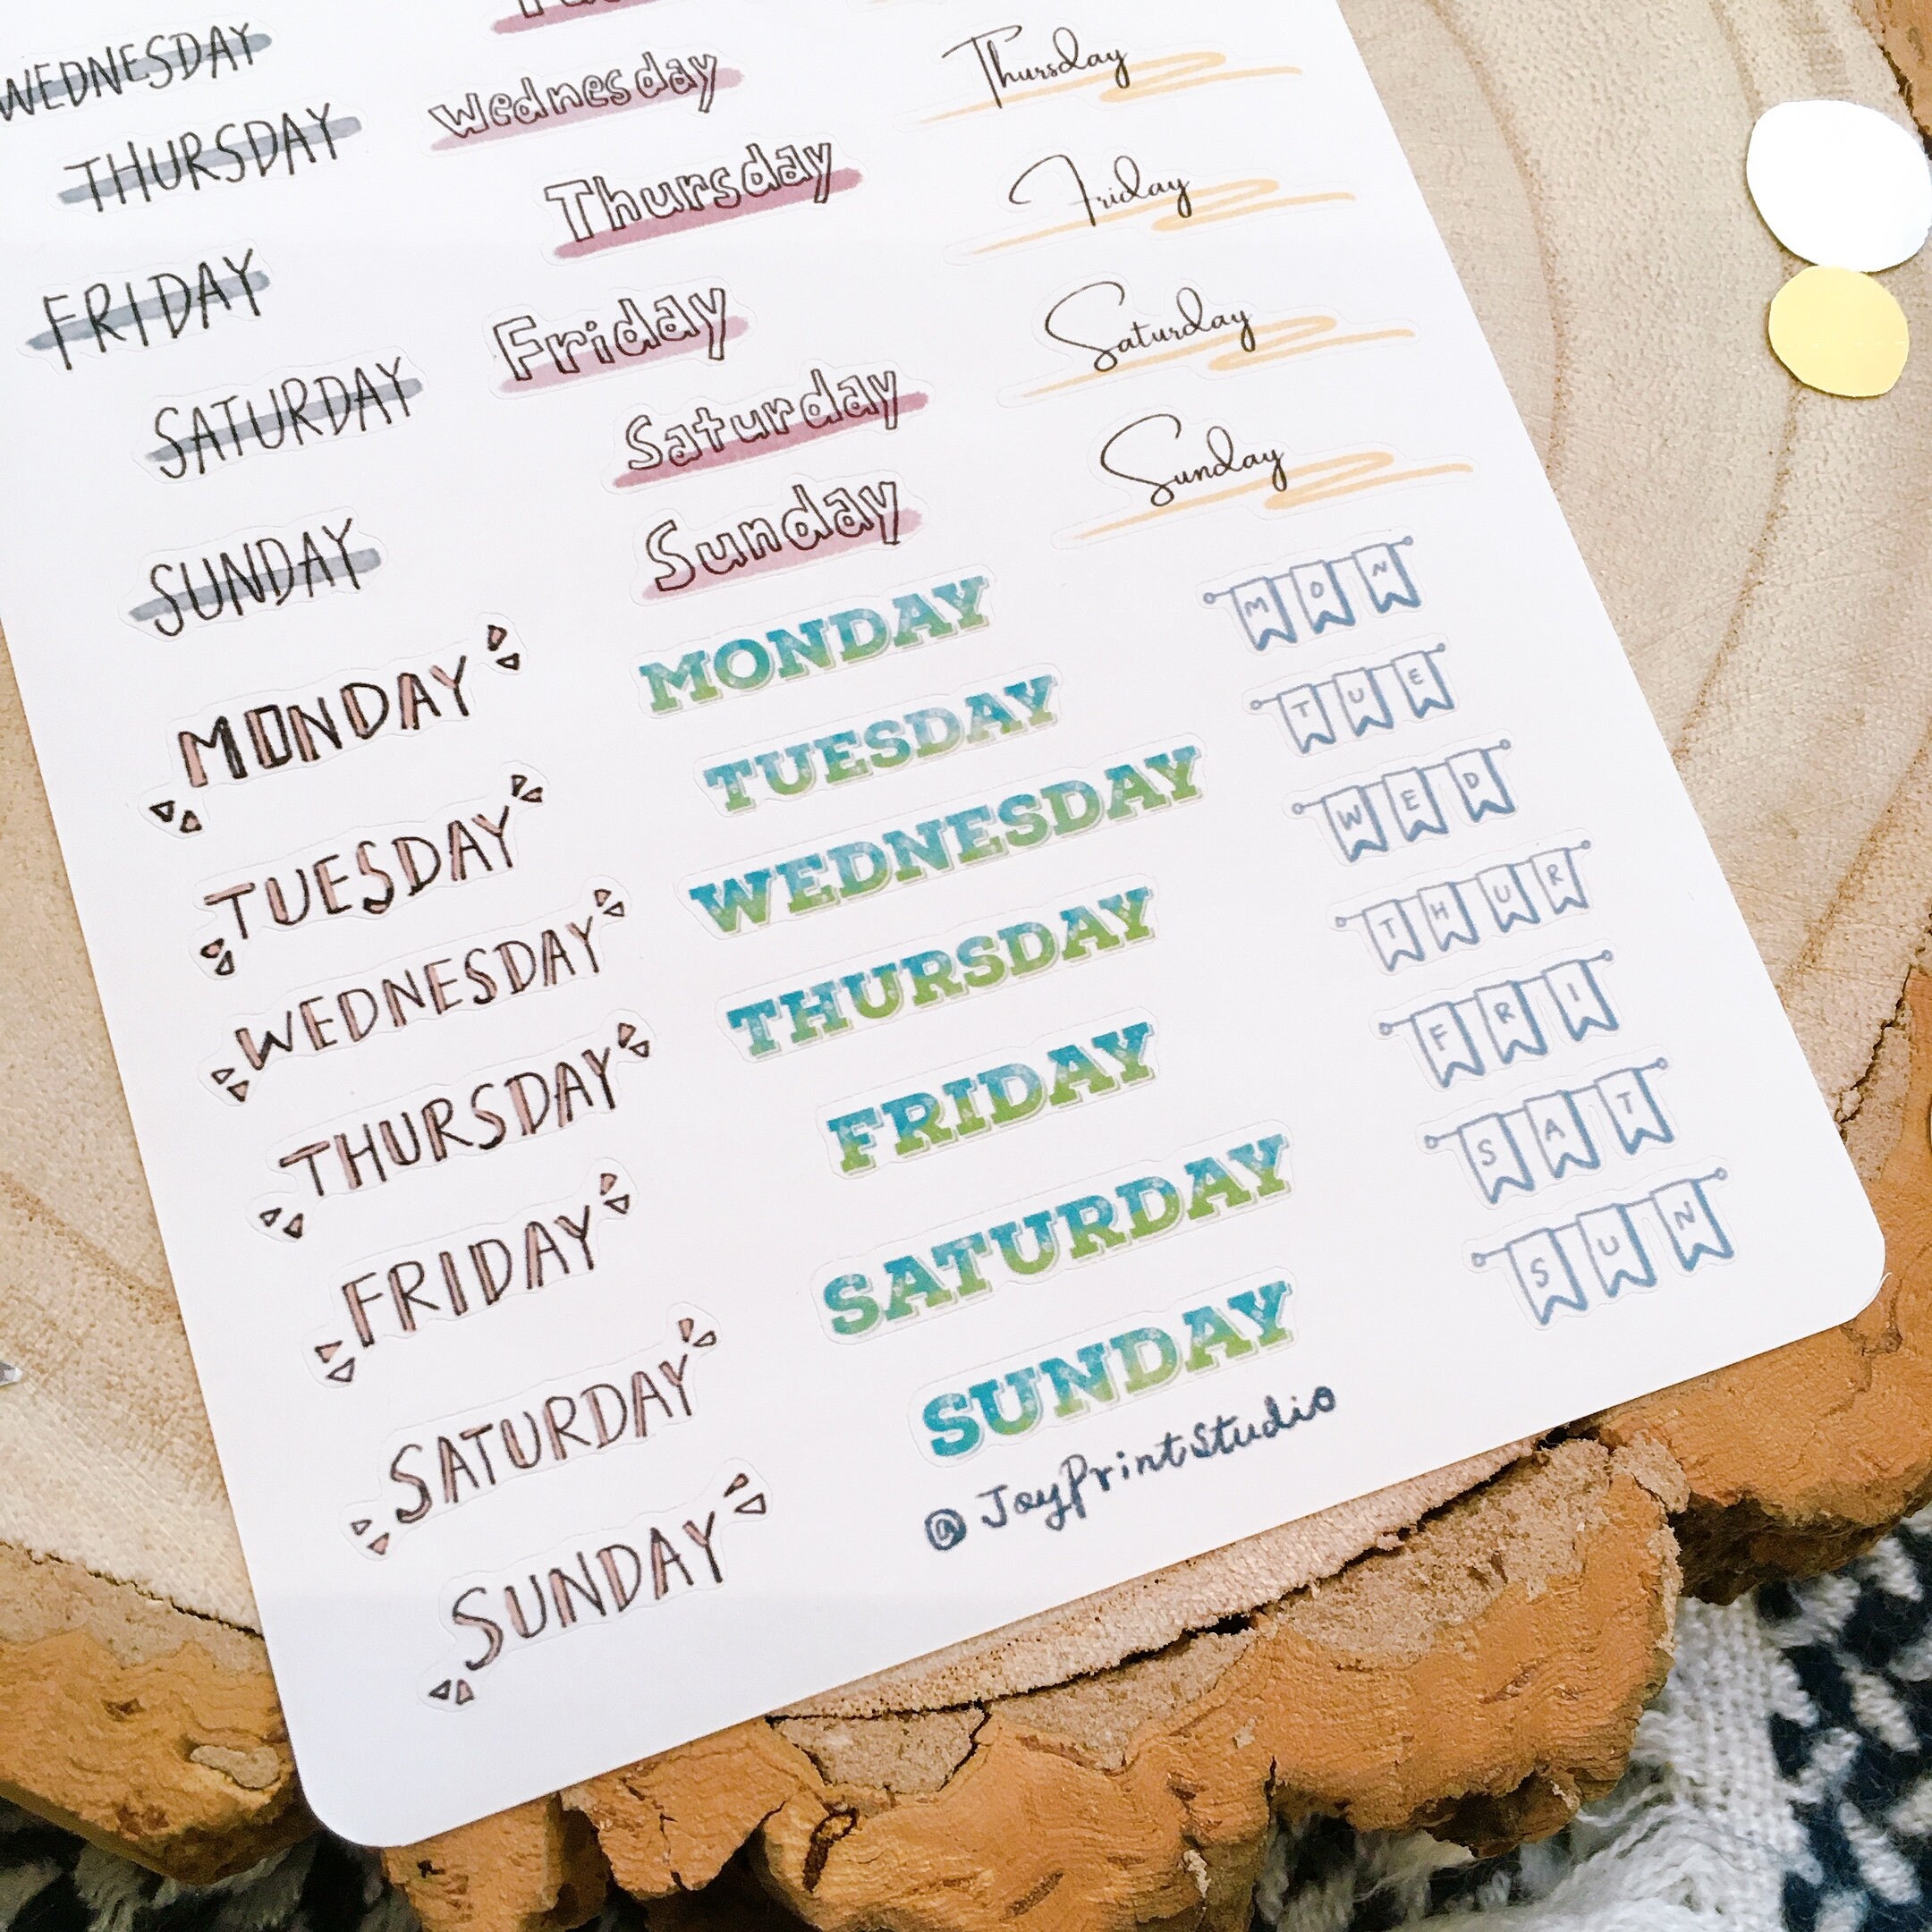 WEDNESDAY
THURSDAY
FRIDAY
SATURDAY
SUNDAY
Wednesday
Thursday
Friday
Saturday
Sunday
Thursday
Friday
Saturday
Sunday
MONDAY
TUESDAY
WEDNESDAY
THURSDAY
FRIDAY
SATURDAY
SUNDAY
MONDAY
TUESDAY
WEDNESDAY
THURSDAY
FRIDAY
SATURDAY
SUNDAY
MON
TUE
WED
THUR
FRI
SAT
SUN
@JoyPrintStudio